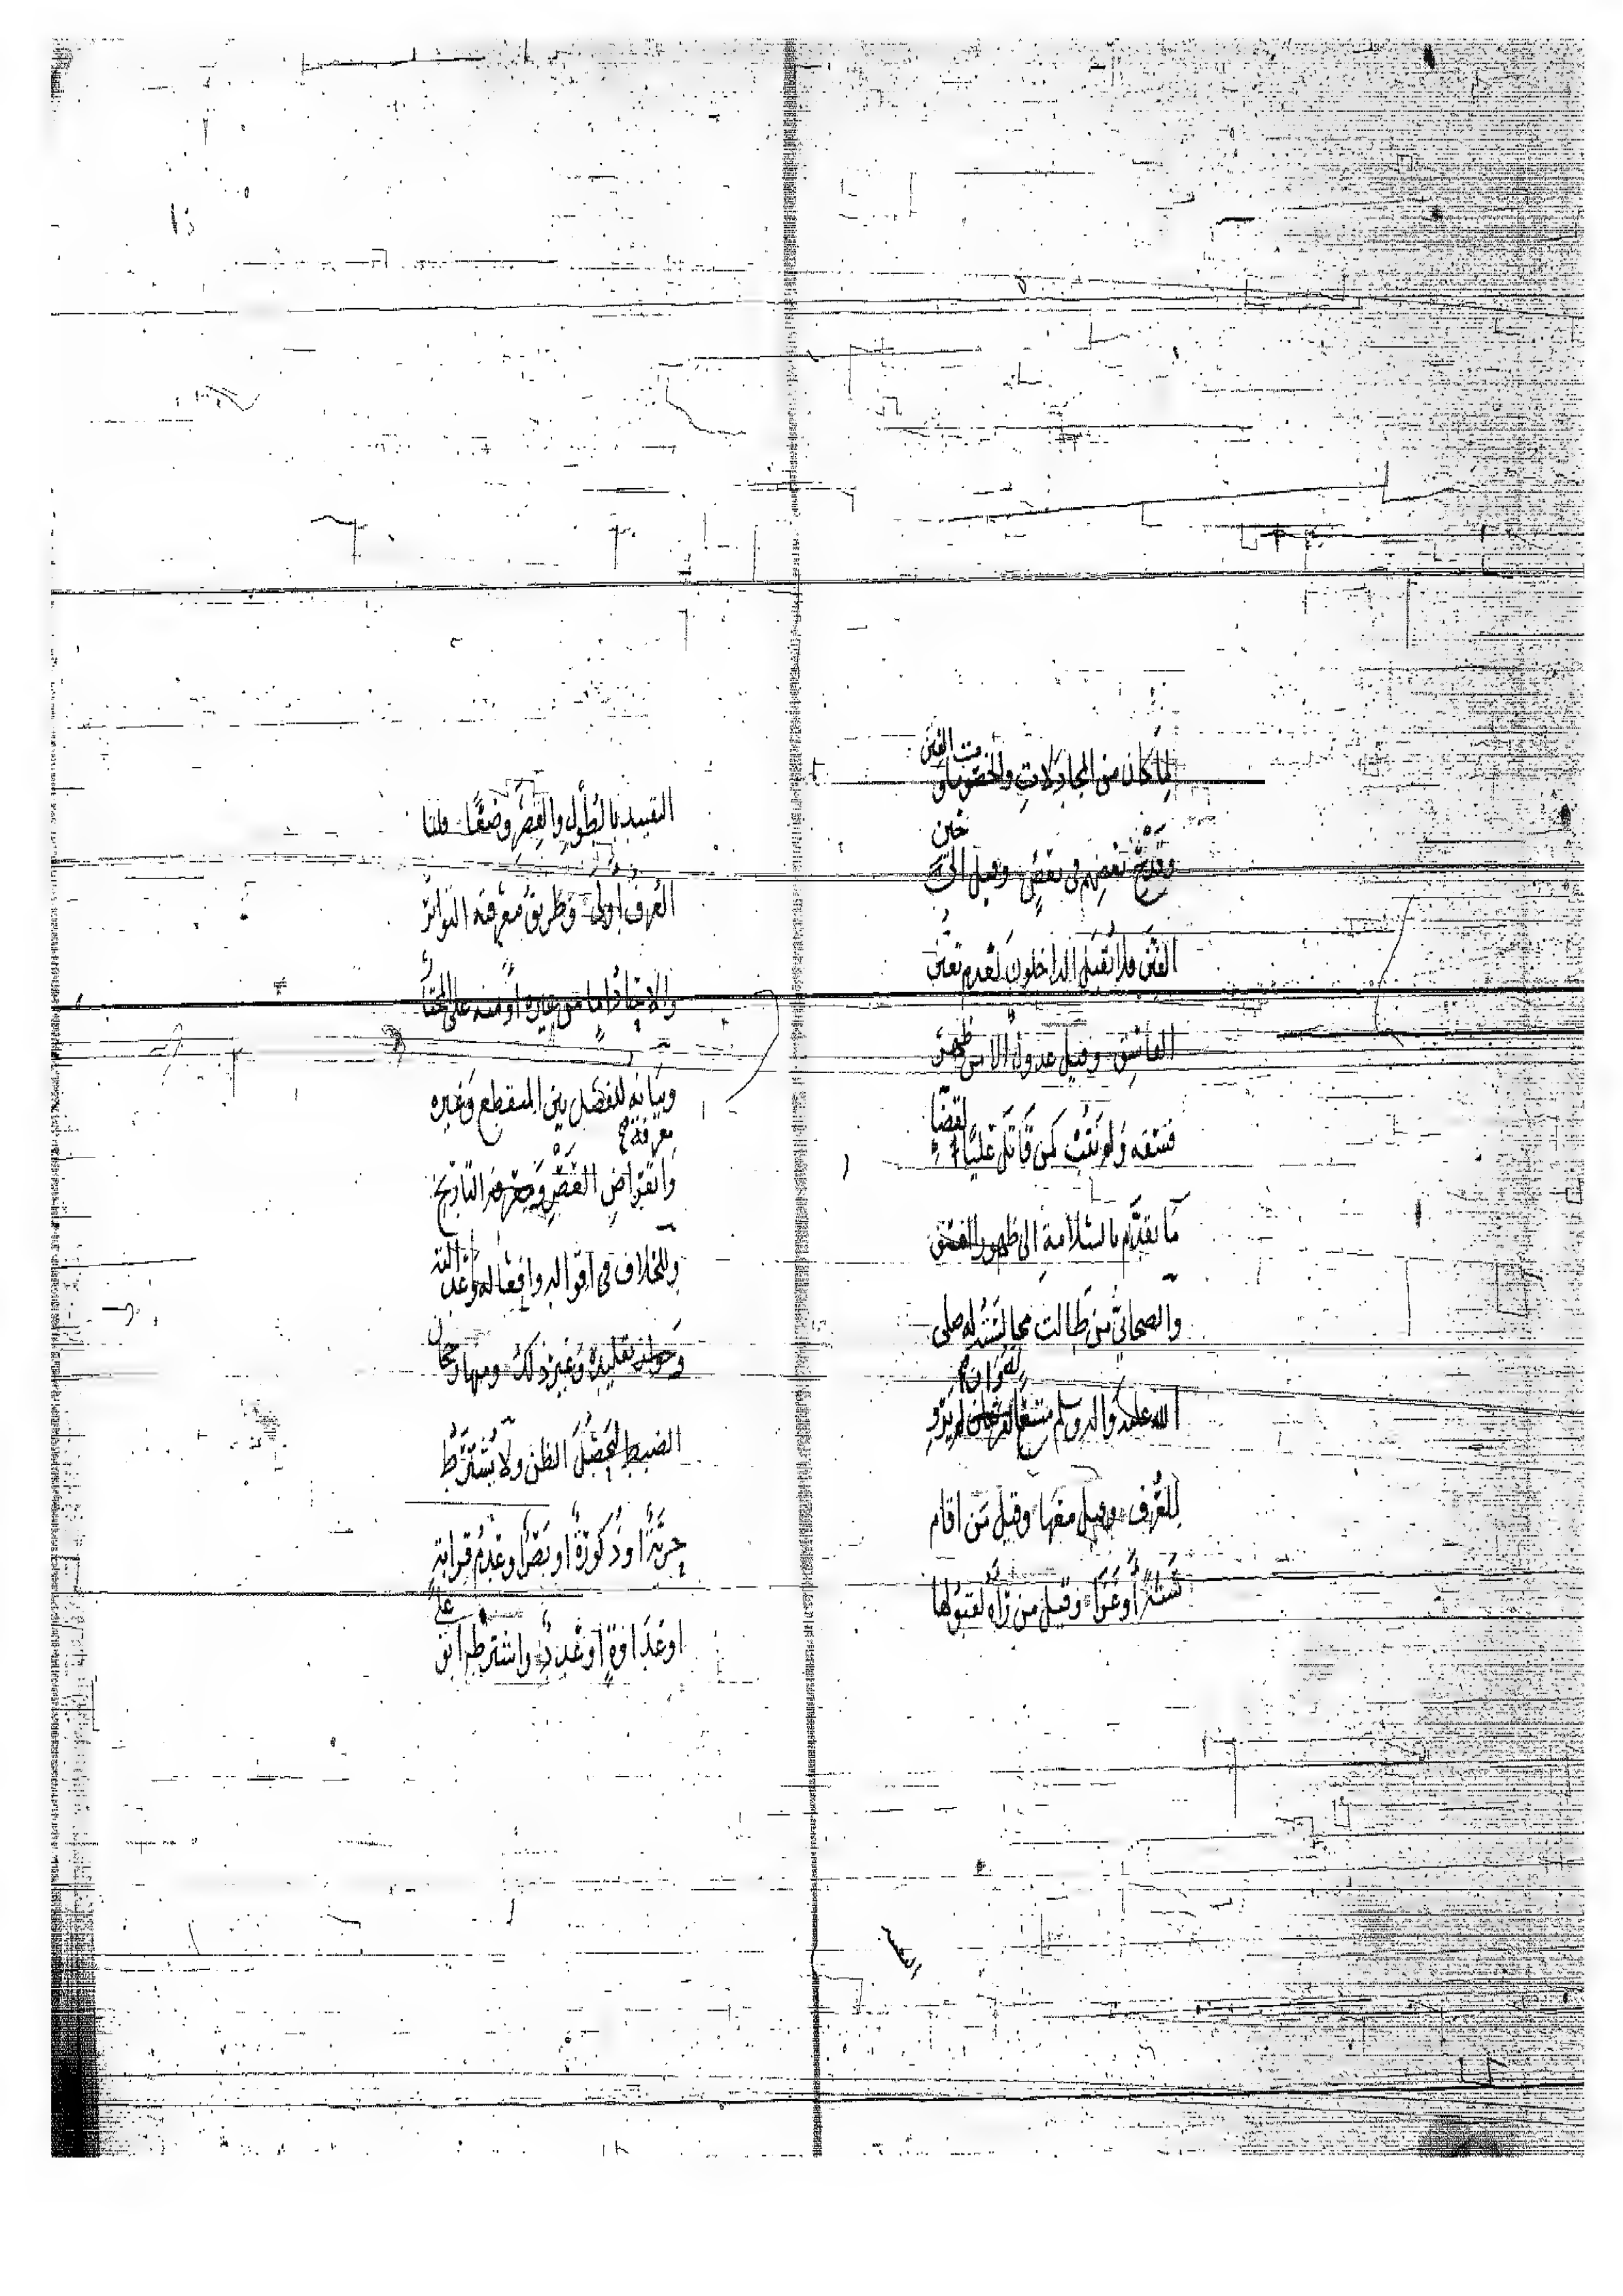 لما كان من المجادلات والخصومات
وقدح بعضهم فى بعض وقيل الى حين
الفتن فلا يقبل الداخلون لعدم تعين
الفاسق وقيل عدول الا من ظهر
فسقه ولم يتب كمن قاتل عليًا لقضا
ما تقدم بالسلامة الى ظهور الفسق
والصحابي من طالت مجالسته له صلى
الله عليه واله وسلم متبعا وان لم يرو
للعرف وقيل معها وقيل من اقام
سنة أو غزا وقيل من راه لقبولها
التقييد بالطول والقصر وضعًا قلنا
العرف أولى وطريق معرفته التواتر
والاحاد اما من غيره أو منه على المختار
وبيانه للفصل بين المنقطع وغيره
وانقراض العصر ومعرفة التاريخ
والخلاف فى اقواله وافعاله وعدالته
وجواز تقليده وغير ذلك ومنها رجحان
الضبط لتحصيل الظن ولا يشترط
حرية أو ذكورة أو بصر أو عدم قرابة
أو عداوة أو عدد واشترط ابو علي